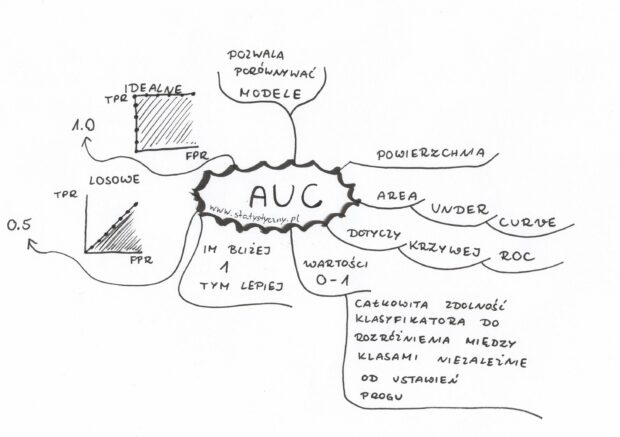 POZWALA
PORÓWNYWAĆ
MODELE
IDEALNE
TPR
1.0
FPR
LOSOWE
TPR
0.5
FPR
AUC
www.statystyczny.pl
POWIERZCHNIA
AREA
UNDER
CURVE
DOTYCZY
KRZYWEJ
ROC
IM BLIŻEJ
1
TYM LEPIEJ
WARTOŚCI
0-1
CAŁKOWITA ZDOLNOŚĆ
KLASYFIKATORA DO
ROZRÓŻNIENIA MIĘDZY
KLASAMI NIEZALEŻNIE
OD USTAWIEŃ
PROGU